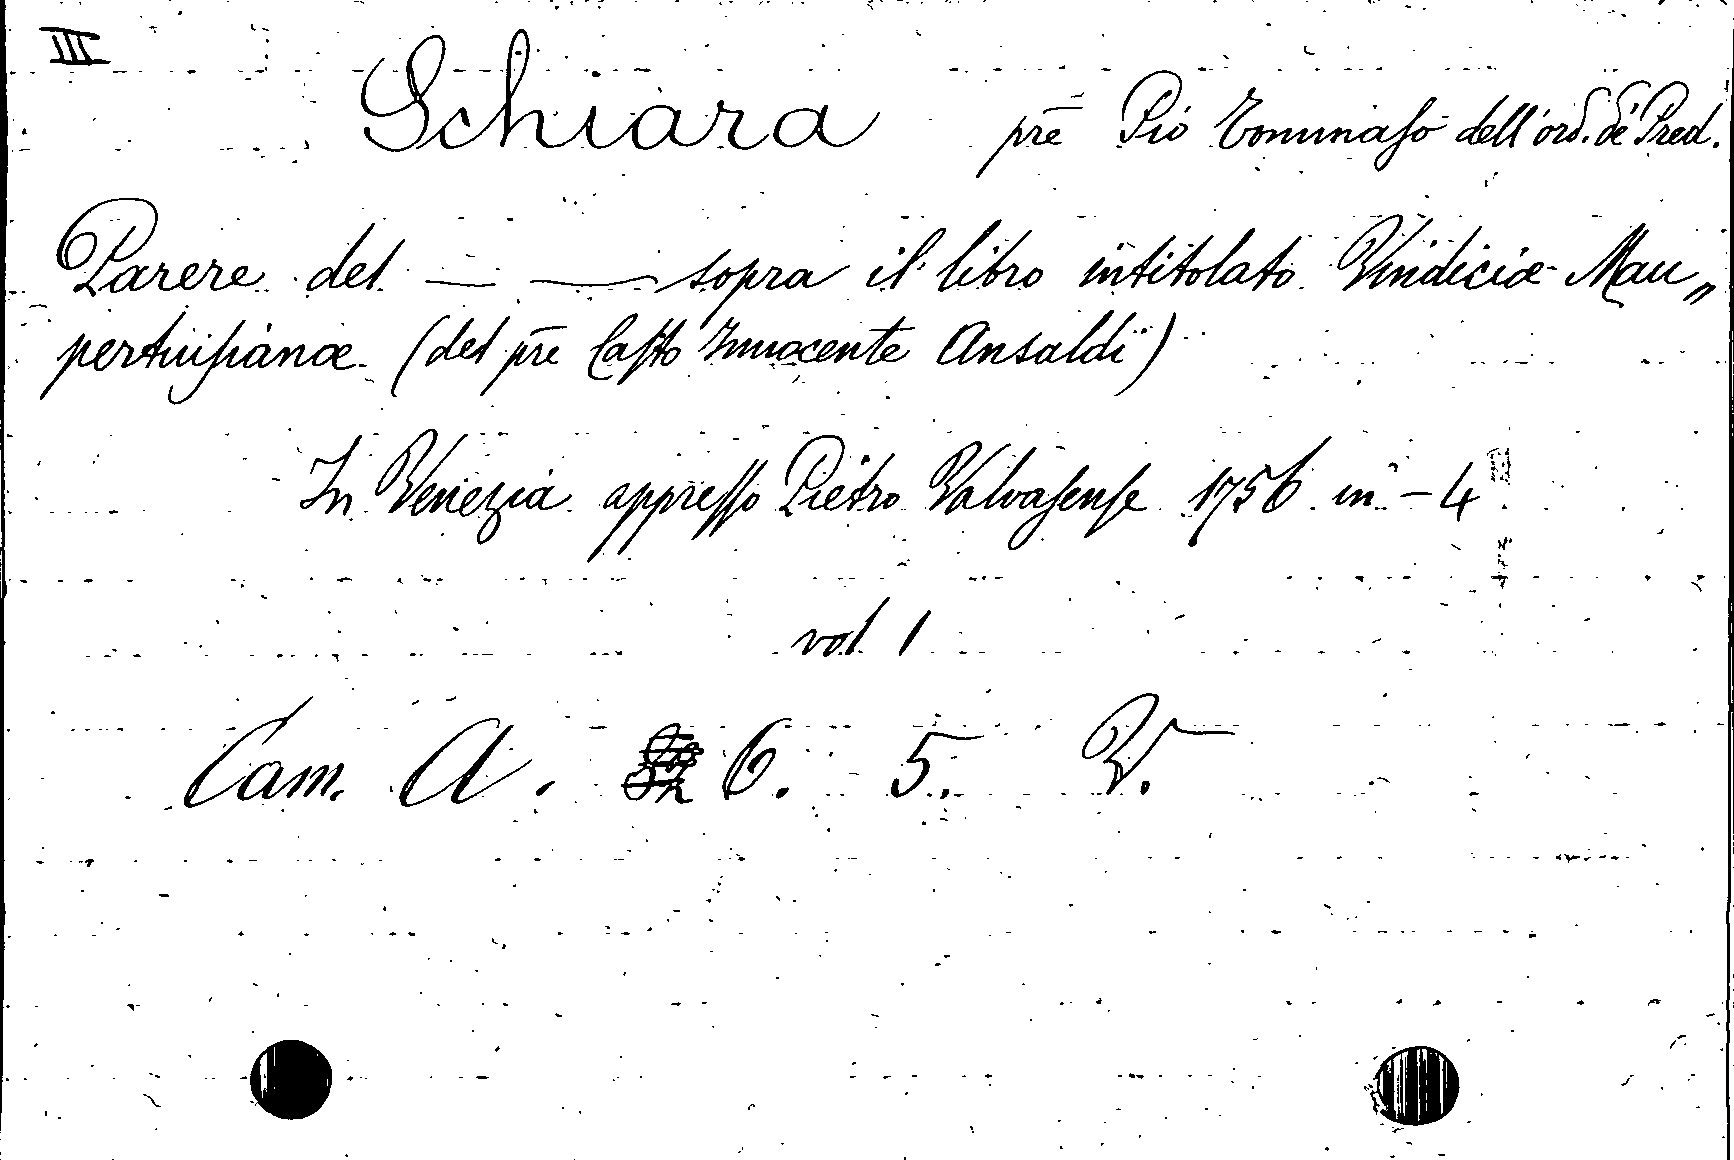 III
Schiara prē Pio Tommaso dell'ord. de' Pred.
Parere del — — sopra il libro intitolato Vindiciæ Mau„
pertuisianæ (del prē Casto Innocente Ansaldi)
In Venezia appresso Pietro Valvasense 1756 in - 4
vol. 1
Cam. A. 6. 5. V.